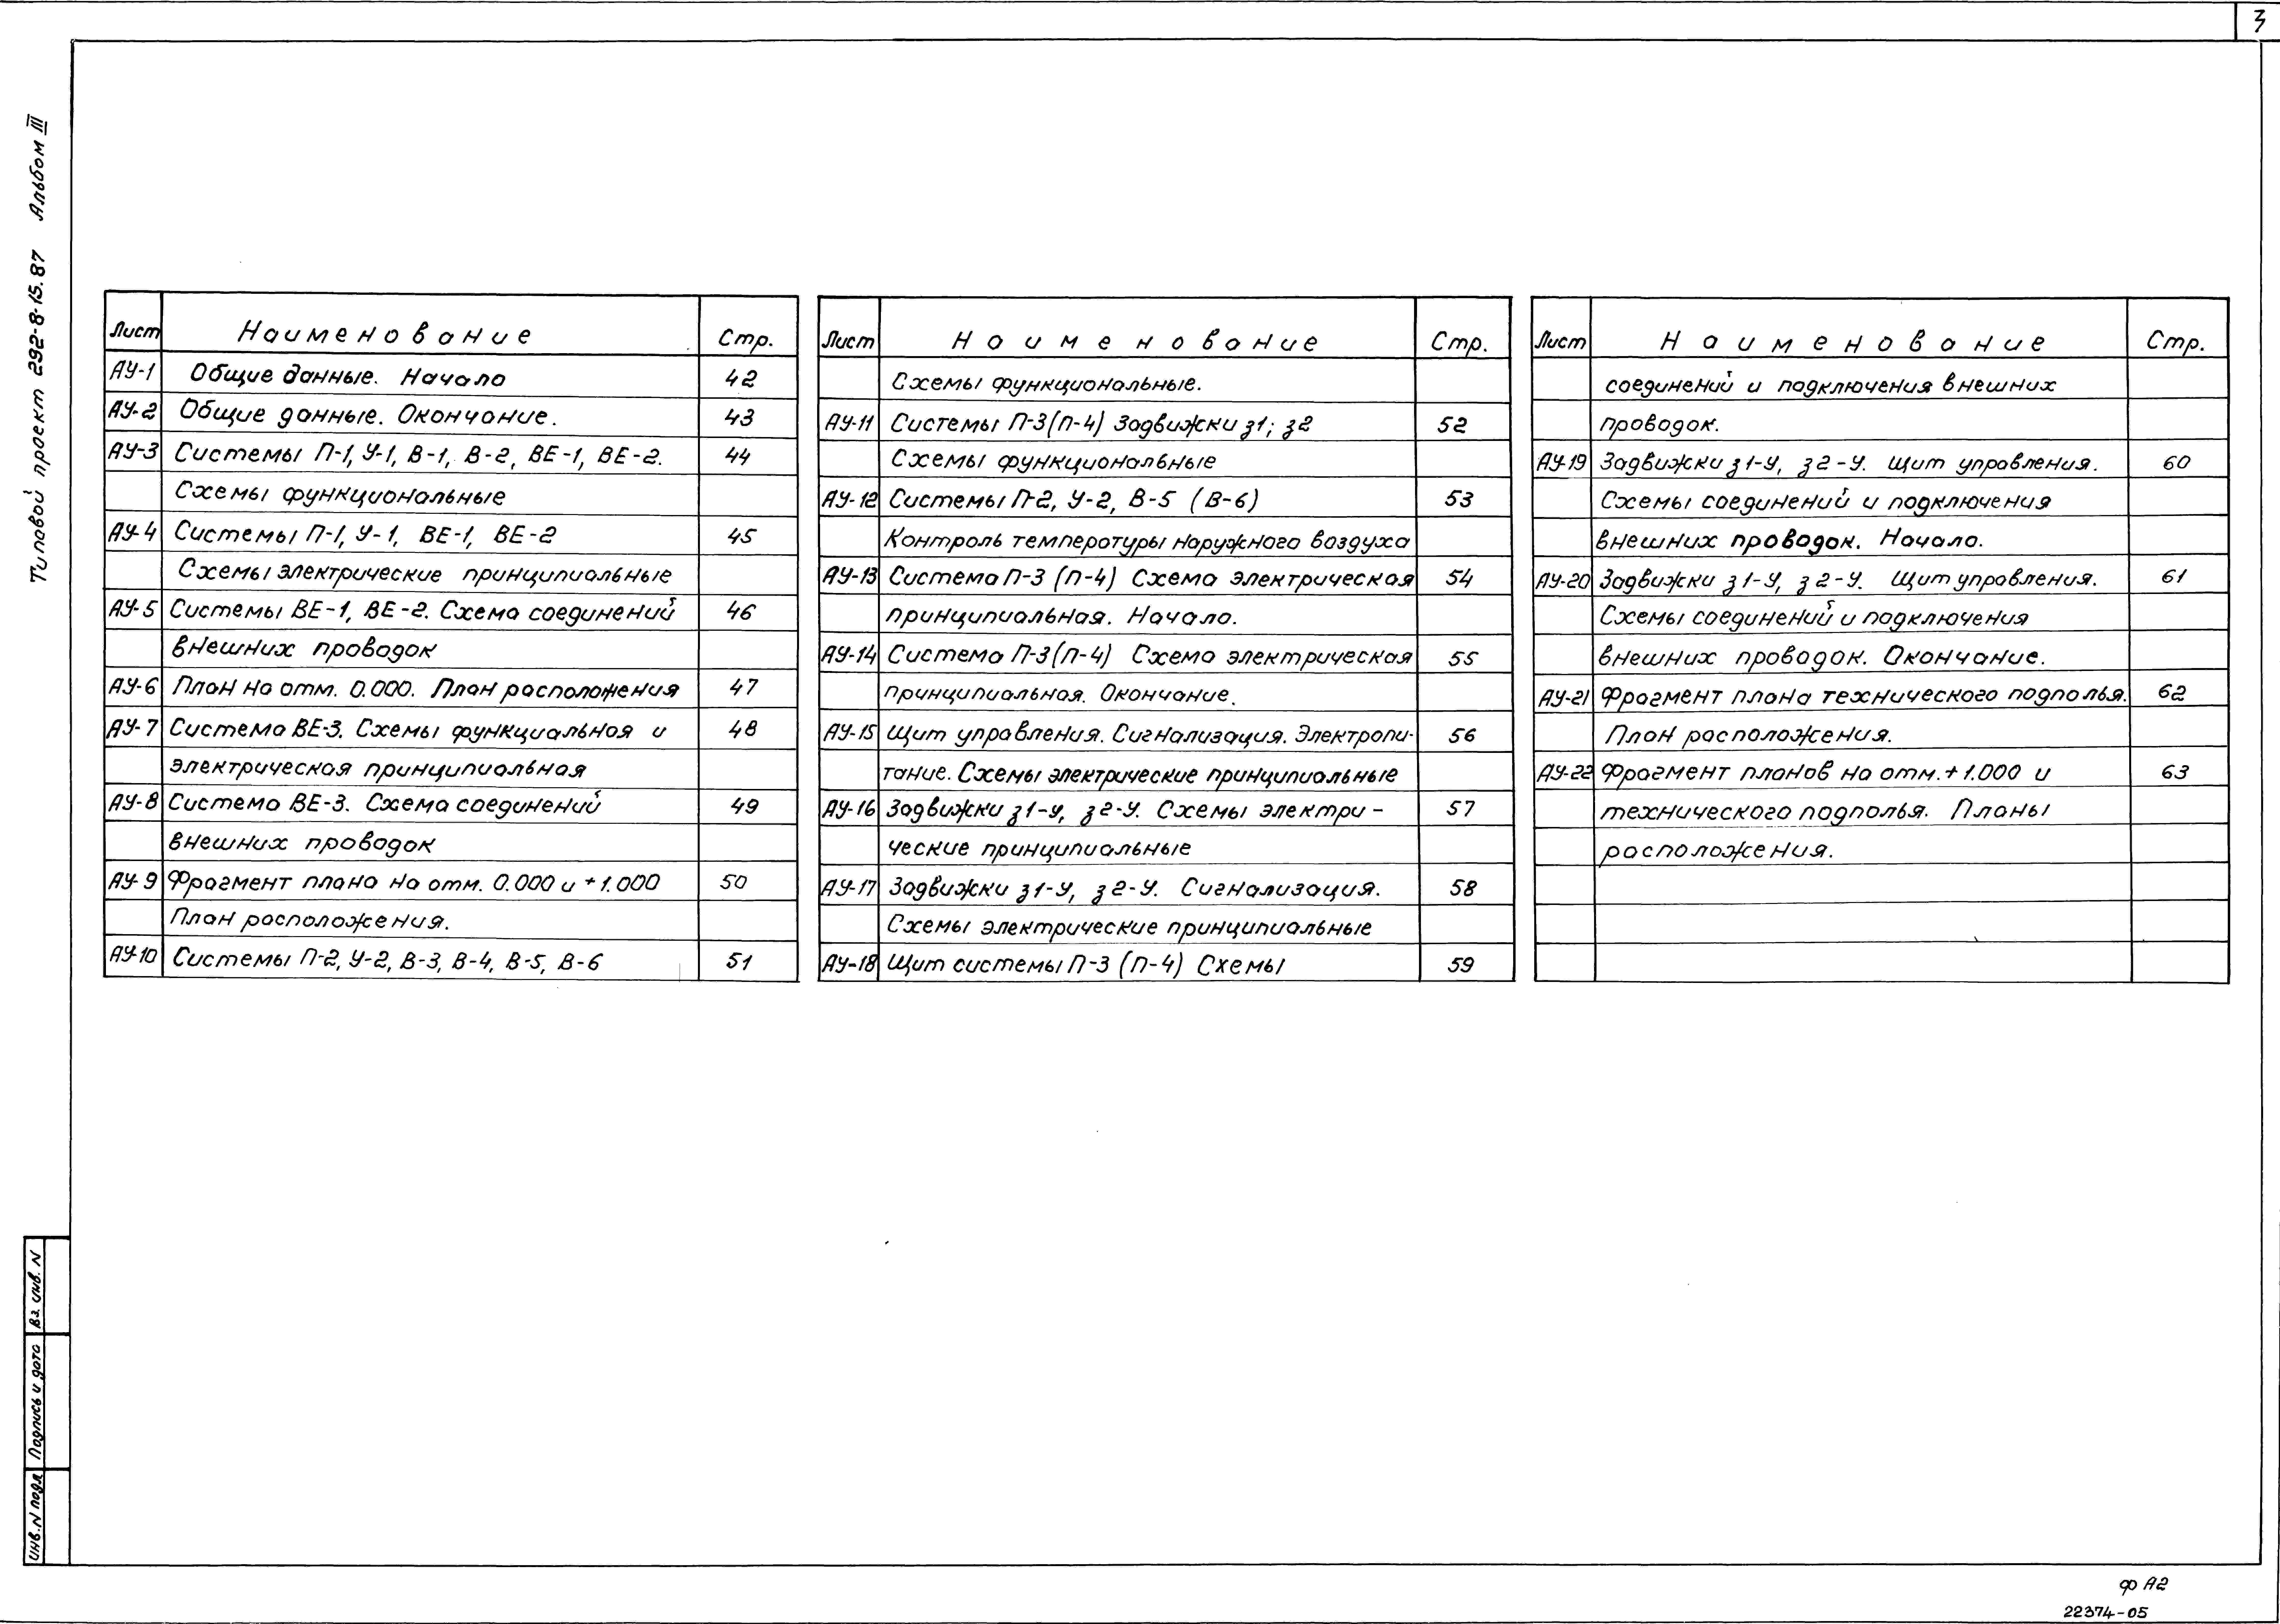 3
Типовой проект 292-8-15.87 Альбом III
Лист Наименование Стр.
АУ-1 Общие данные. Начало 42
АУ-2 Общие данные. Окончание. 43
АУ-3 Системы П-1, У-1, В-1, В-2, ВЕ-1, ВЕ-2. 44
Схемы функциональные
АУ-4 Системы П-1, У-1, ВЕ-1, ВЕ-2 45
Схемы электрические принципиальные
АУ-5 Системы ВЕ-1, ВЕ-2. Схема соединений 46
внешних проводок
АУ-6 План на отм. 0.000. План расположения 47
АУ-7 Система ВЕ-3. Схемы функциальная и 48
электрическая принципиальная
АУ-8 Система ВЕ-3. Схема соединений 49
внешних проводок
АУ-9 Фрагмент плана на отм. 0.000 и +1.000 50
План расположения.
АУ-10 Системы П-2, У-2, В-3, В-4, В-5, В-6 51
Лист Наименование Стр.
Схемы функциональные.
АУ-11 Системы П-3(П-4) Задвижки з1; з2 52
Схемы функциональные
АУ-12 Системы П-2, У-2, В-5 (В-6) 53
Контроль температуры наружного воздуха
АУ-13 Система П-3 (П-4) Схема электрическая 54
принципиальная. Начало.
АУ-14 Система П-3(П-4) Схема электрическая 55
принципиальная. Окончание.
АУ-15 Щит управления. Сигнализация. Электропи- 56
тание. Схемы электрические принципиальные
АУ-16 Задвижки з1-У, з2-У. Схемы электри- 57
ческие принципиальные
АУ-17 Задвижки з1-У, з2-У. Сигнализация. 58
Схемы электрические принципиальные
АУ-18 Щит системы П-3 (П-4) Схемы 59
Лист Наименование Стр.
соединений и подключения внешних
проводок.
АУ-19 Задвижки з1-У, з2-У. Щит управления. 60
Схемы соединений и подключения
внешних проводок. Начало.
АУ-20 Задвижки з1-У, з2-У. Щит управления. 61
Схемы соединений и подключения
внешних проводок. Окончание.
АУ-21 Фрагмент плана технического подполья. 62
План расположения.
АУ-22 Фрагмент планов на отм. +1.000 и 63
технического подполья. Планы
расположения.
Инв. N подл Подпись и дата Вз. инв. N
ф А2
22374-05